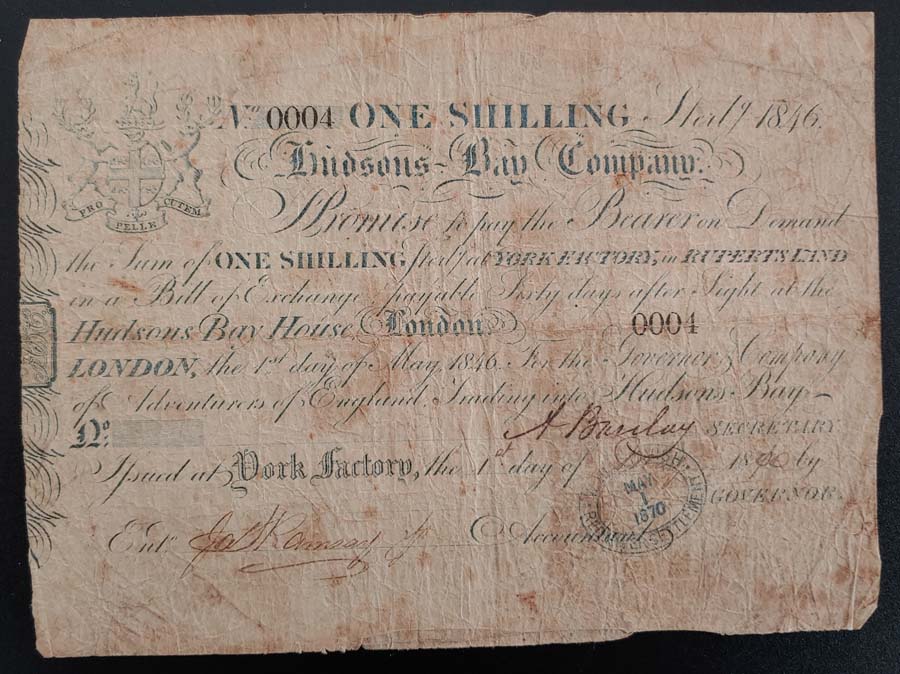 No. 0004 ONE SHILLING Sterlg. 1846.
Hudsons-Bay Company.
PRO PELLE CUTEM
I Promise to pay the Bearer on Demand
the Sum of ONE SHILLING Sterlg. at YORK FACTORY, in RUPERTS LAND
in a Bill of Exchange payable Sixty days after Sight at the
Hudsons Bay House London 0004
LONDON, the 1st day of May, 1846. For the Governor & Company
of Adventurers of England, Trading into Hudsons-Bay-
No. A Barclay SECRETARY
Issued at York Factory, the 1st day of 18 by
GOVERNOR.
Entd. Accountant
MAY 1 1870
RED RIVER SETTLEMENT